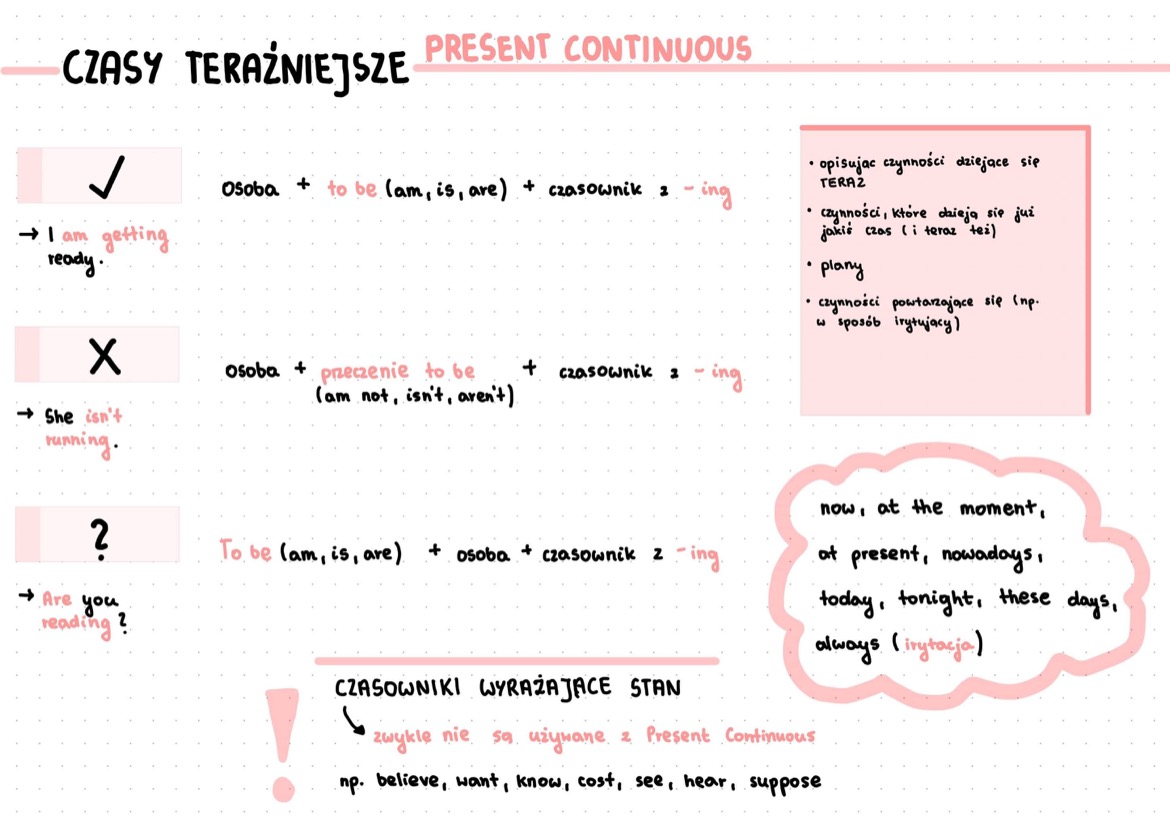 CZASY TERAŹNIEJSZE PRESENT CONTINUOUS
✓
osoba + to be (am, is, are) + czasownik z -ing
→ I am getting
ready.
X
osoba + przeczenie to be + czasownik z -ing
(am not, isn't, aren't)
→ She isn't
running.
?
To be (am, is, are) + osoba + czasownik z -ing
→ Are you
reading?
• opisując czynności dziejące się
TERAZ
• czynności, które dzieją się już
jakiś czas (i teraz też)
• plany
• czynności powtarzające się (np.
w sposób irytujący)
now, at the moment,
at present, nowadays,
today, tonight, these days,
always (irytacja)
! CZASOWNIKI WYRAŻAJĄCE STAN
zwykle nie są używane z Present Continuous
np. believe, want, know, cost, see, hear, suppose